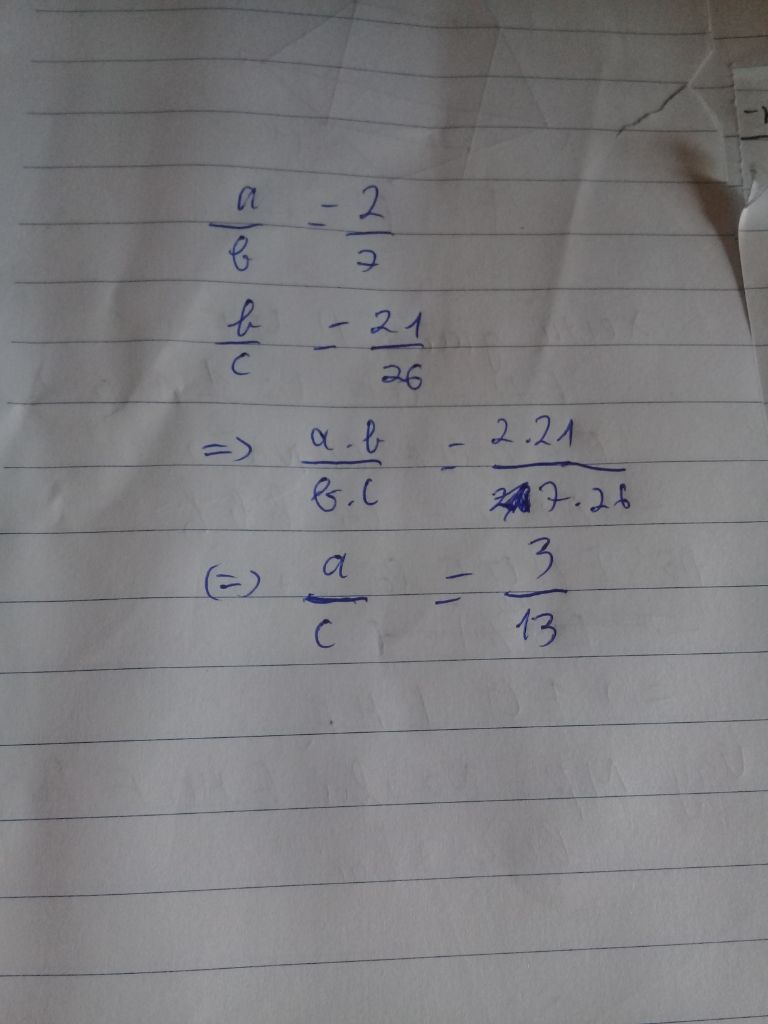 a/b = 2/7
b/c = 21/26
=> a.b/b.c = 2.21/7.26
(=) a/c = 3/13